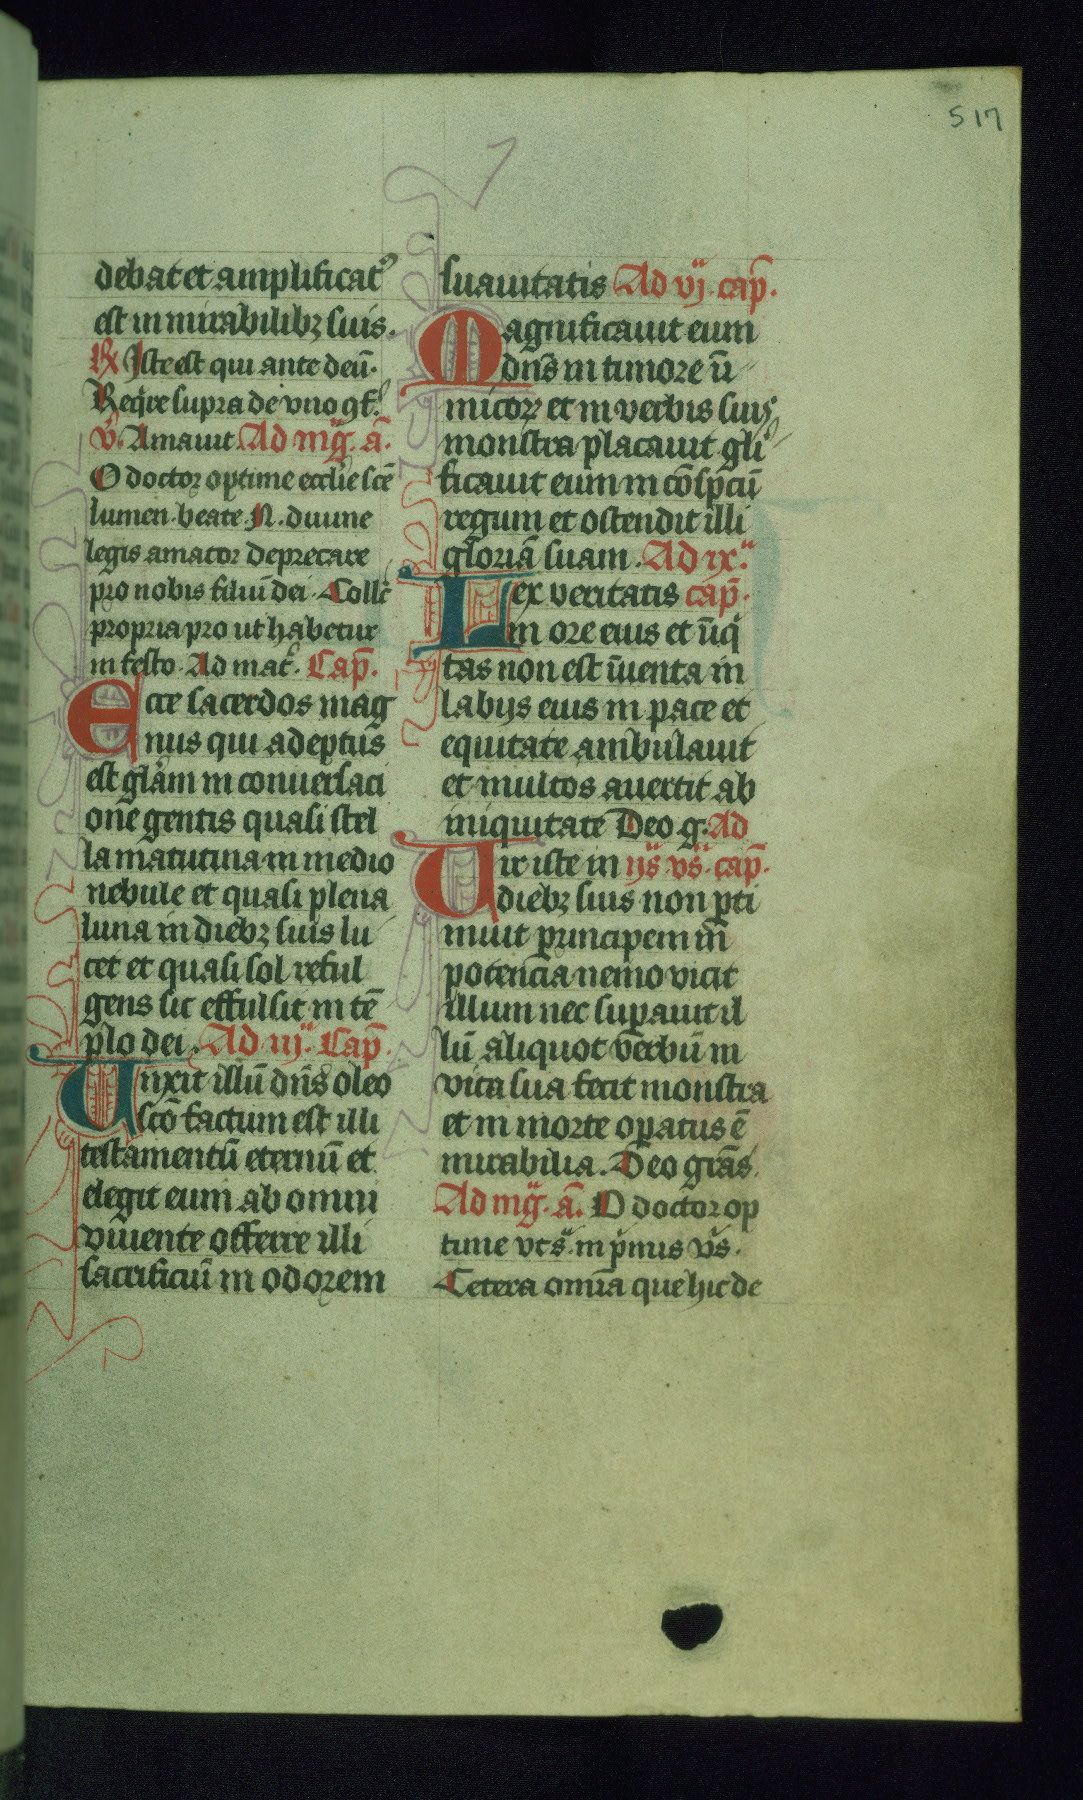 517
debat et amplificat᷒
est in mirabilibꝫ suis.
R̸ Iste est qui ante deū.
Reqͥre supra de vno ꝯf.
v̇. Amauit. Ad mḡ. a͞.
O doctor optime ecclīe scē
lumen. beate .N. diuine
legis amator deprecare
pro nobis filiū dei. Collc̄
propria pro ut habetur
in festo. Ad mat᷒. Cap̄.
Ecce sacerdos mag
nus qui adeptus
est glām in conuersaci
one gentis quasi stel
la matutina in medio
nebule et quasi plena
luna in diebꝫ suis lu
cet et quasi sol reful
gens sic effulsit in tē
plo dei. Ad iij. Cap̄.
Unxit illū dn̄s oleo
scō factum est illi
testamentū eternū et
elegit eum ab omni
viuente offerre illi
sacrificiū in odorem
suauitatis Ad vj. cap̄.
Magnificauit eum
dn̄s in timore ū
micoꝝ et in verbis suis
monstra placauit gl̄i
ficauit eum in cōspcū
regum et ostendit illi
gloriā suam. Ad ix.
Lex veritatis cap̄.
in ore eius et īiq̇
tas non est īuenta in
labijs eius in pace et
equitate ambulauit
et multos auertit ab
iniquitate Deo g̅. Ad
Uir iste in ijs vs̄. cap̄.
diebꝫ suis non ꝑti
muit principem in
potencia nemo vicit
illum nec suꝑauit il
lū aliquot verbū in
vita sua fecit monstra
et in morte oꝑatus ē
mirabilia. Deo grās.
Ad mḡ. a͞. O doctor op
time vts̄. in pͥmis vs̄.
Cetera omīa que hic de